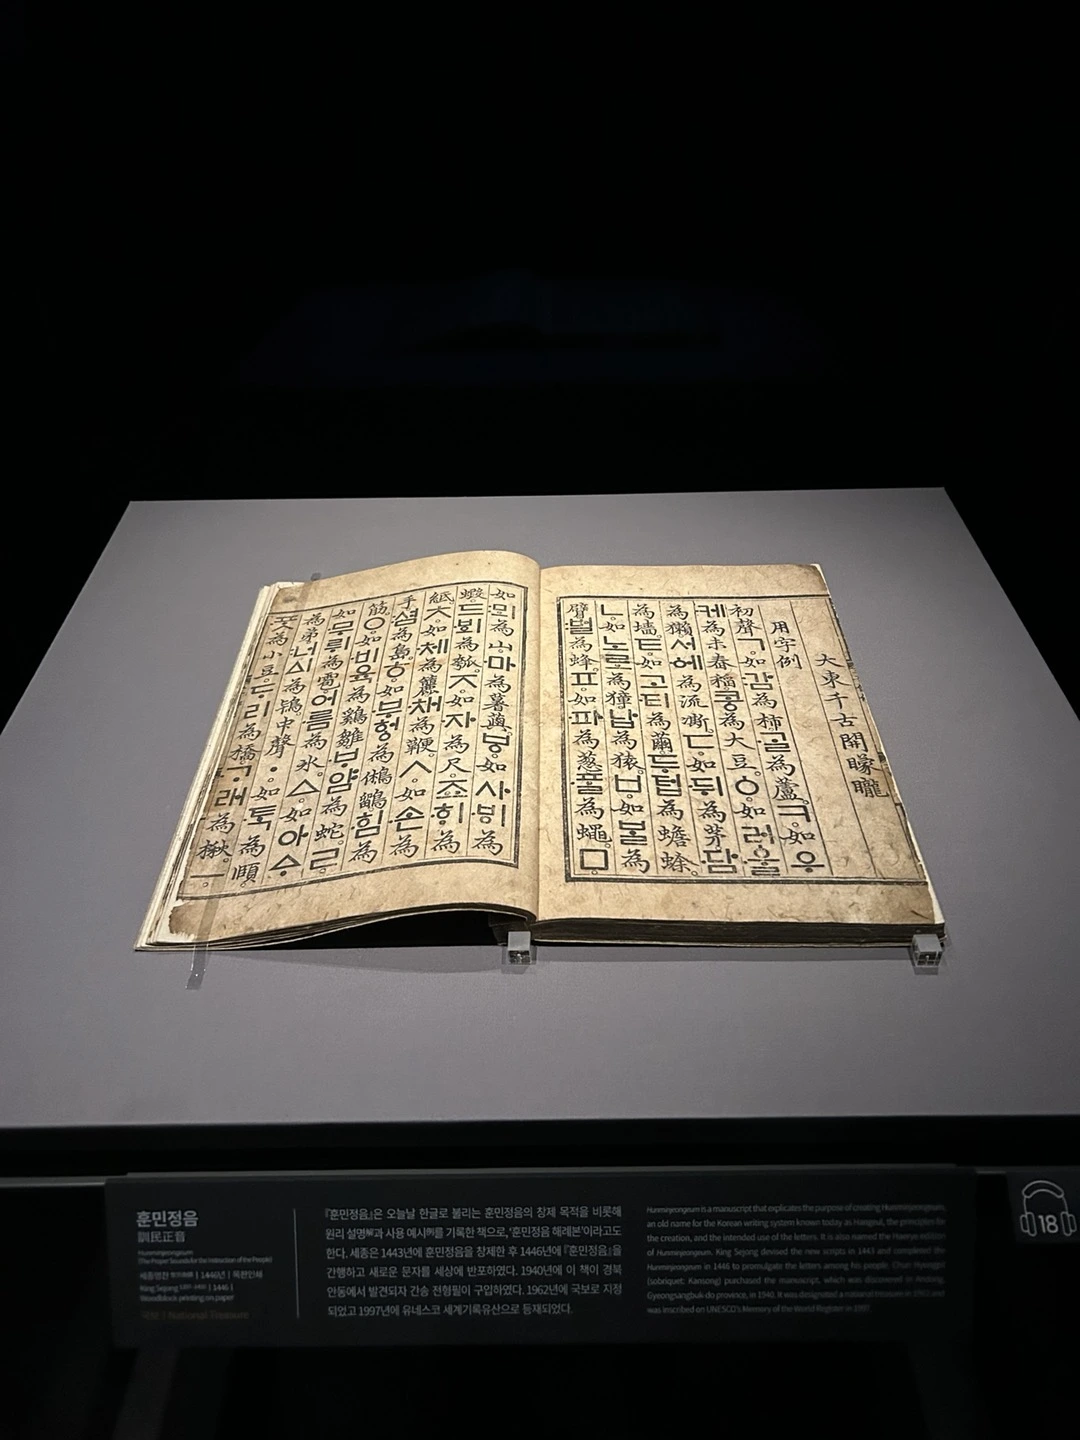 大東千古開矇矓
用字例
初聲ㄱ。如감為柿。ᄀᆞᆯ為蘆。ㅋ。如우
케為未舂稻。콩為大豆。ㆁ。如러울
為獺。서ᅌᅦ為流凘。ㄷ。如뒤為茅。담
為墻。ㅌ。如고티為繭。두텁為蟾蜍。
ㄴ。如노로為獐。납為猿。ㅂ。如ᄇᆞᆯ為
臂。벌為蜂。ㅍ。如파為葱。ᄑᆞᆯ為蠅。ㅁ
如뫼為山。마為薯藇。ㅸ。如사ᄫᅵ為
蝦。드ᄫᅴ為瓠。ㅈ。如자為尺。죠ᄒᆡ為
紙。ㅊ。如체為籭。채為鞭。ㅅ。如손為
手。셤為島。ㅎ。如부헝為鵂鶹。힘為
筋。ㅇ。如비육為鷄雛。ᄇᆞ얌為蛇。ㄹ。
如무뤼為雹。어름為氷。ㅿ。如아ᅀᆞ
為弟。너ᅀᅵ為鴇。中聲ㆍ。如ᄐᆞᆨ為頤。
ᄑᆞᆺ為小豆。ᄃᆞ리為橋。ᄀᆞ래為楸。ㅡ。
훈민정음
訓民正音
Hunminjeongeum
(The Proper Sounds for the Instruction of the People)
세종 | 1446년 | 목판인쇄
King Sejong | 1446 |
Woodblock printing on paper
국보 | National Treasure
『훈민정음』은 오늘날 한글로 불리는 훈민정음의 창제 목적을 비롯해
원리 설명解과 사용 예시例를 기록한 책으로, '훈민정음 해례본'이라고도
한다. 세종은 1443년에 훈민정음을 창제한 후 1446년에 『훈민정음』을
간행하고 새로운 문자를 세상에 반포하였다. 1940년에 이 책이 경북
안동에서 발견되자 간송 전형필이 구입하였다. 1962년에 국보로 지정
되었고 1997년에 유네스코 세계기록유산으로 등재되었다.
Hunminjeongeum is a manuscript that explicates the purpose of creating Hunminjeongeum,
an old name for the Korean writing system known today as Hangeul, the principles for
the creation, and the intended use of the letters. It is also named the Haerye edition
of Hunminjeongeum. King Sejong devised the new scripts in 1443 and completed the
Hunminjeongeum in 1446 to promulgate the letters among his people. Chun Hyungpil
(sobriquet: Kansong) purchased the manuscript, which was discovered in Andong,
Gyeongsangbuk-do province, in 1940. It was designated a national treasure in 1962 and
was inscribed on UNESCO's Memory of the World Register in 1997.
18